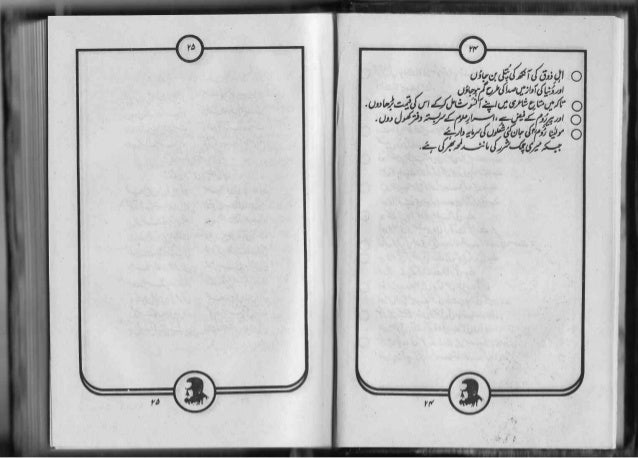 ۲۴
اہلِ ذوق کی آنکھ کی پُتلی بن جاؤں
اور دُنیا کی آواز میں صدا کی طرح گم ہو جاؤں
تاکہ میں متاعِ شاعری میں اپنے آنسو شامل کرکے اس کی قیمت بڑھا دوں۔
اور پیرِ رُوم کے فیض سے، اسرارِ علوم کے سربستہ دفتر کھول دوں۔
مولینا رُوم کی جان کئی شعلوں کی سرمایہ دار ہے
جبکہ میری چمک شرر کی مانند لمحہ بھر کی ہے۔
۲۴
۲۵
۲۵